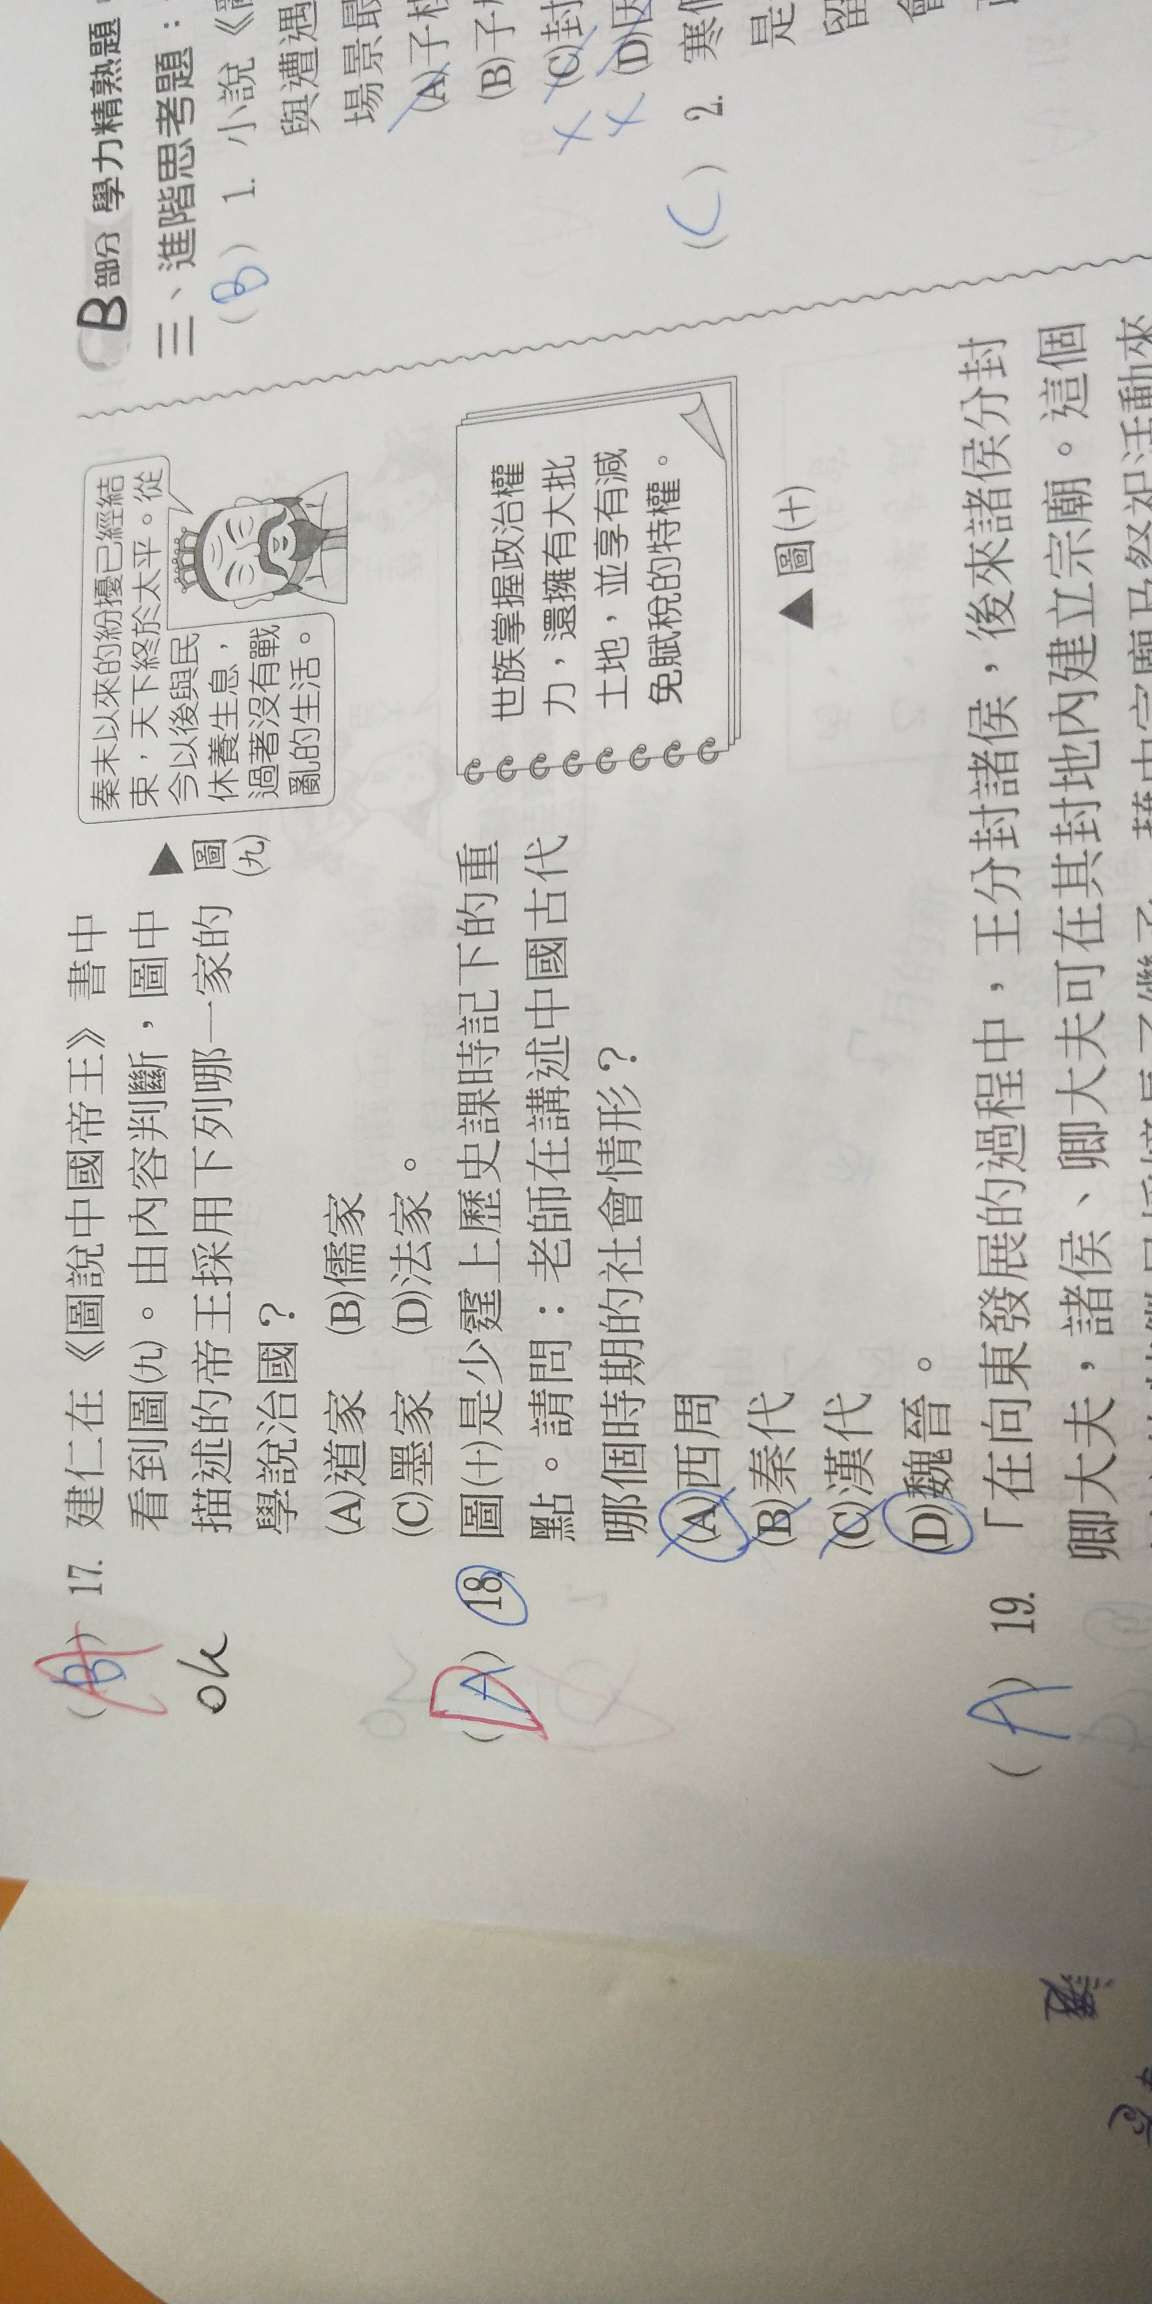 (B) 17. 建仁在《圖說中國帝王》書中
看到圖(九)。由內容判斷，圖中
描述的帝王採用下列哪一家的
學說治國？
(A)道家 (B)儒家
(C)墨家 (D)法家。
ok
秦末以來的紛擾已經結
束，天下終於太平。從
今以後與民
休養生息，
過著沒有戰
亂的生活。
▲圖
(九)
(A) 18. 圖(十)是少霆上歷史課時記下的重
點。請問：老師在講述中國古代
哪個時期的社會情形？
(A)西周
(B)秦代
(C)漢代
(D)魏晉。
D
世族掌握政治權
力，還擁有大批
土地，並享有減
免賦稅的特權。
▲圖(十)
(A) 19. 「在向東發展的過程中，王分封諸侯，後來諸侯分封
卿大夫，諸侯、卿大夫可在其封地內建立宗廟。這個
B部分 學力精熟題
三、進階思考題：
(B) 1. 小說《
與遭遇
場景最
(A)子
(B)子
(C)封
(D)因
(C) 2. 寒假
是
留
會